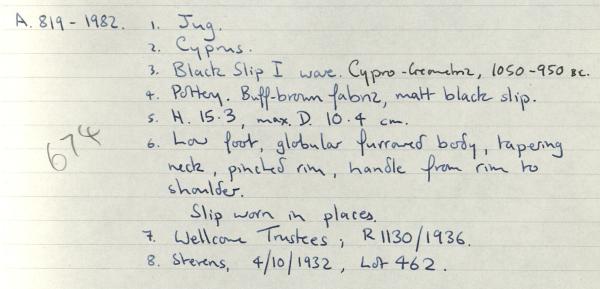 A. 819-1982. 1. Jug.
2. Cyprus.
3. Black Slip I ware. Cypro-Geometric, 1050-950 BC.
4. Pottery. Buff-brown fabric, matt black slip.
5. H. 15.3, max. D. 10.4 cm.
6. Low foot, globular furrowed body, tapering
neck, pinched rim, handle from rim to
shoulder.
Slip worn in places.
7. Wellcome Trustees; R1130/1936.
8. Stevens, 4/10/1932, Lot 462.
674